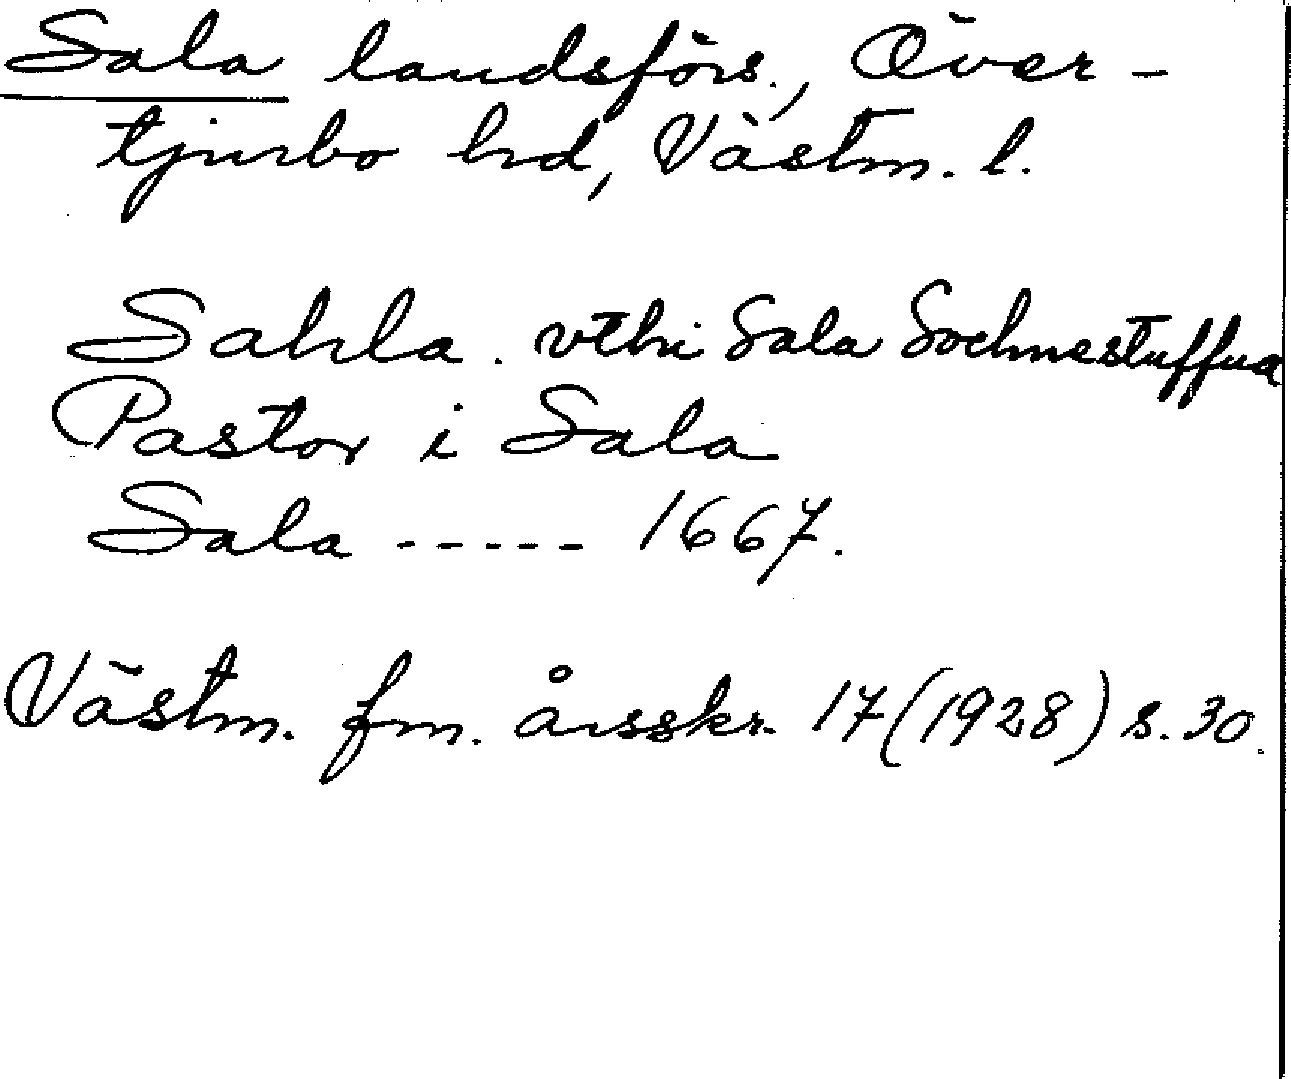 Sala landsförs., Över-
tjurbo hd, Västm. l.
Sahla. vthi Sala Sochnestuffua
Pastor i Sala
Sala ----- 1667.
Västm. fm. årsskr. 17 (1928) s. 30.